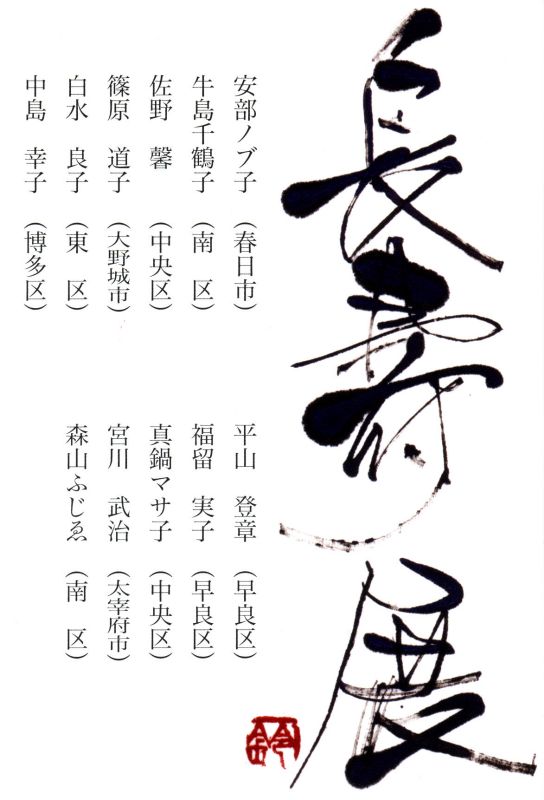 長寿展
安部ノブ子 (春日市)
牛島千鶴子 (南 区)
佐野 馨 (中央区)
篠原 道子 (大野城市)
白水 良子 (東 区)
中島 幸子 (博多区)
平山 登章 (早良区)
福留 実子 (早良区)
真鍋マサ子 (中央区)
宮川 武治 (太宰府市)
森山ふじゑ (南 区)